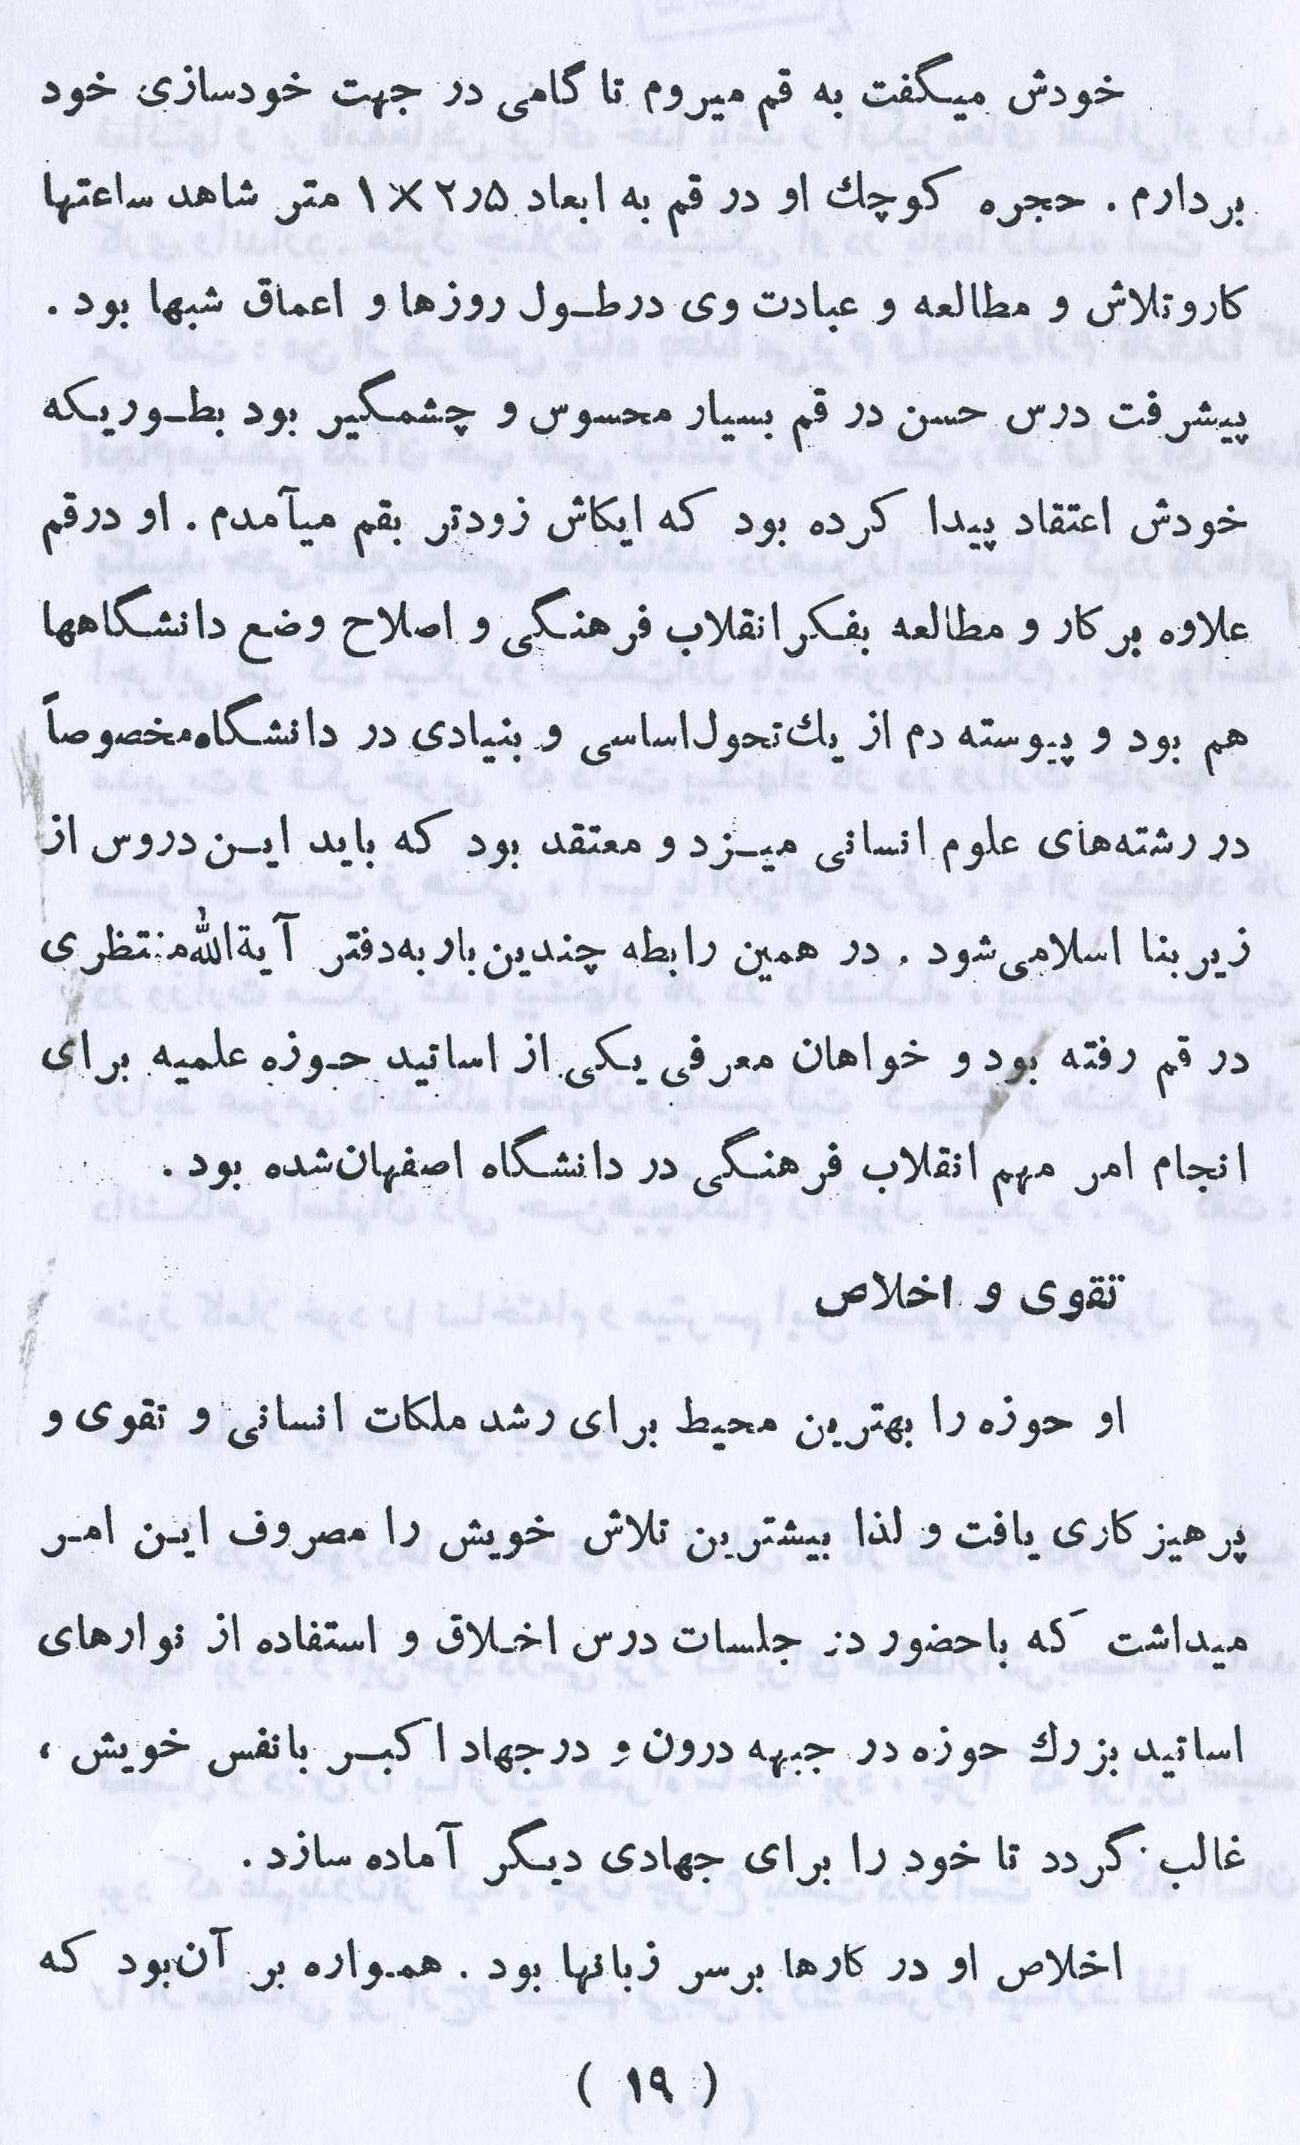 خودش میگفت به قم میروم تا گامی در جهت خودسازی خود
بردارم . حجره کوچك او در قم به ابعاد ۲٫۵ × ۱ متر شاهد ساعتها
کاروتلاش و مطالعه و عبادت وی درطول روزها و اعماق شبها بود .
پیشرفت درس حسن در قم بسیار محسوس و چشمگیر بود بطوریکه
خودش اعتقاد پیدا کرده بود که ایکاش زودتر بقم میآمدم . او درقم
علاوه برکار و مطالعه بفکر انقلاب فرهنگی و اصلاح وضع دانشگاهها
هم بود و پیوسته دم از یك تحول اساسی و بنیادی در دانشگاه مخصوصاً
در رشته‌های علوم انسانی میزد و معتقد بود که باید این دروس از
زیر بنا اسلامی شود . در همین رابطه چندین بار به دفتر آیة‌الله منتظری
در قم رفته بود و خواهان معرفی یکی از اساتید حوزه علمیه برای
انجام امر مهم انقلاب فرهنگی در دانشگاه اصفهان شده بود .
تقوی و اخلاص
او حوزه را بهترین محیط برای رشد ملکات انسانی و تقوی و
پرهیزکاری یافت و لذا بیشترین تلاش خویش را مصروف این امر
میداشت که باحضور در جلسات درس اخلاق و استفاده از نوارهای
اساتید بزرك حوزه در جبهه درون و درجهاد اکبر بانفس خویش ،
غالب گردد تا خود را برای جهادی دیگر آماده سازد .
اخلاص او در کارها برسر زبانها بود . همواره بر آن بود که
( ۱۹ )